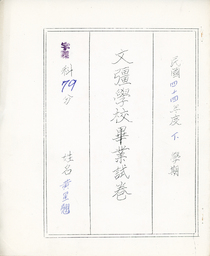 民國四十四年度 下 學期
文彊學校畢業試卷
科 79 分
姓名 黃